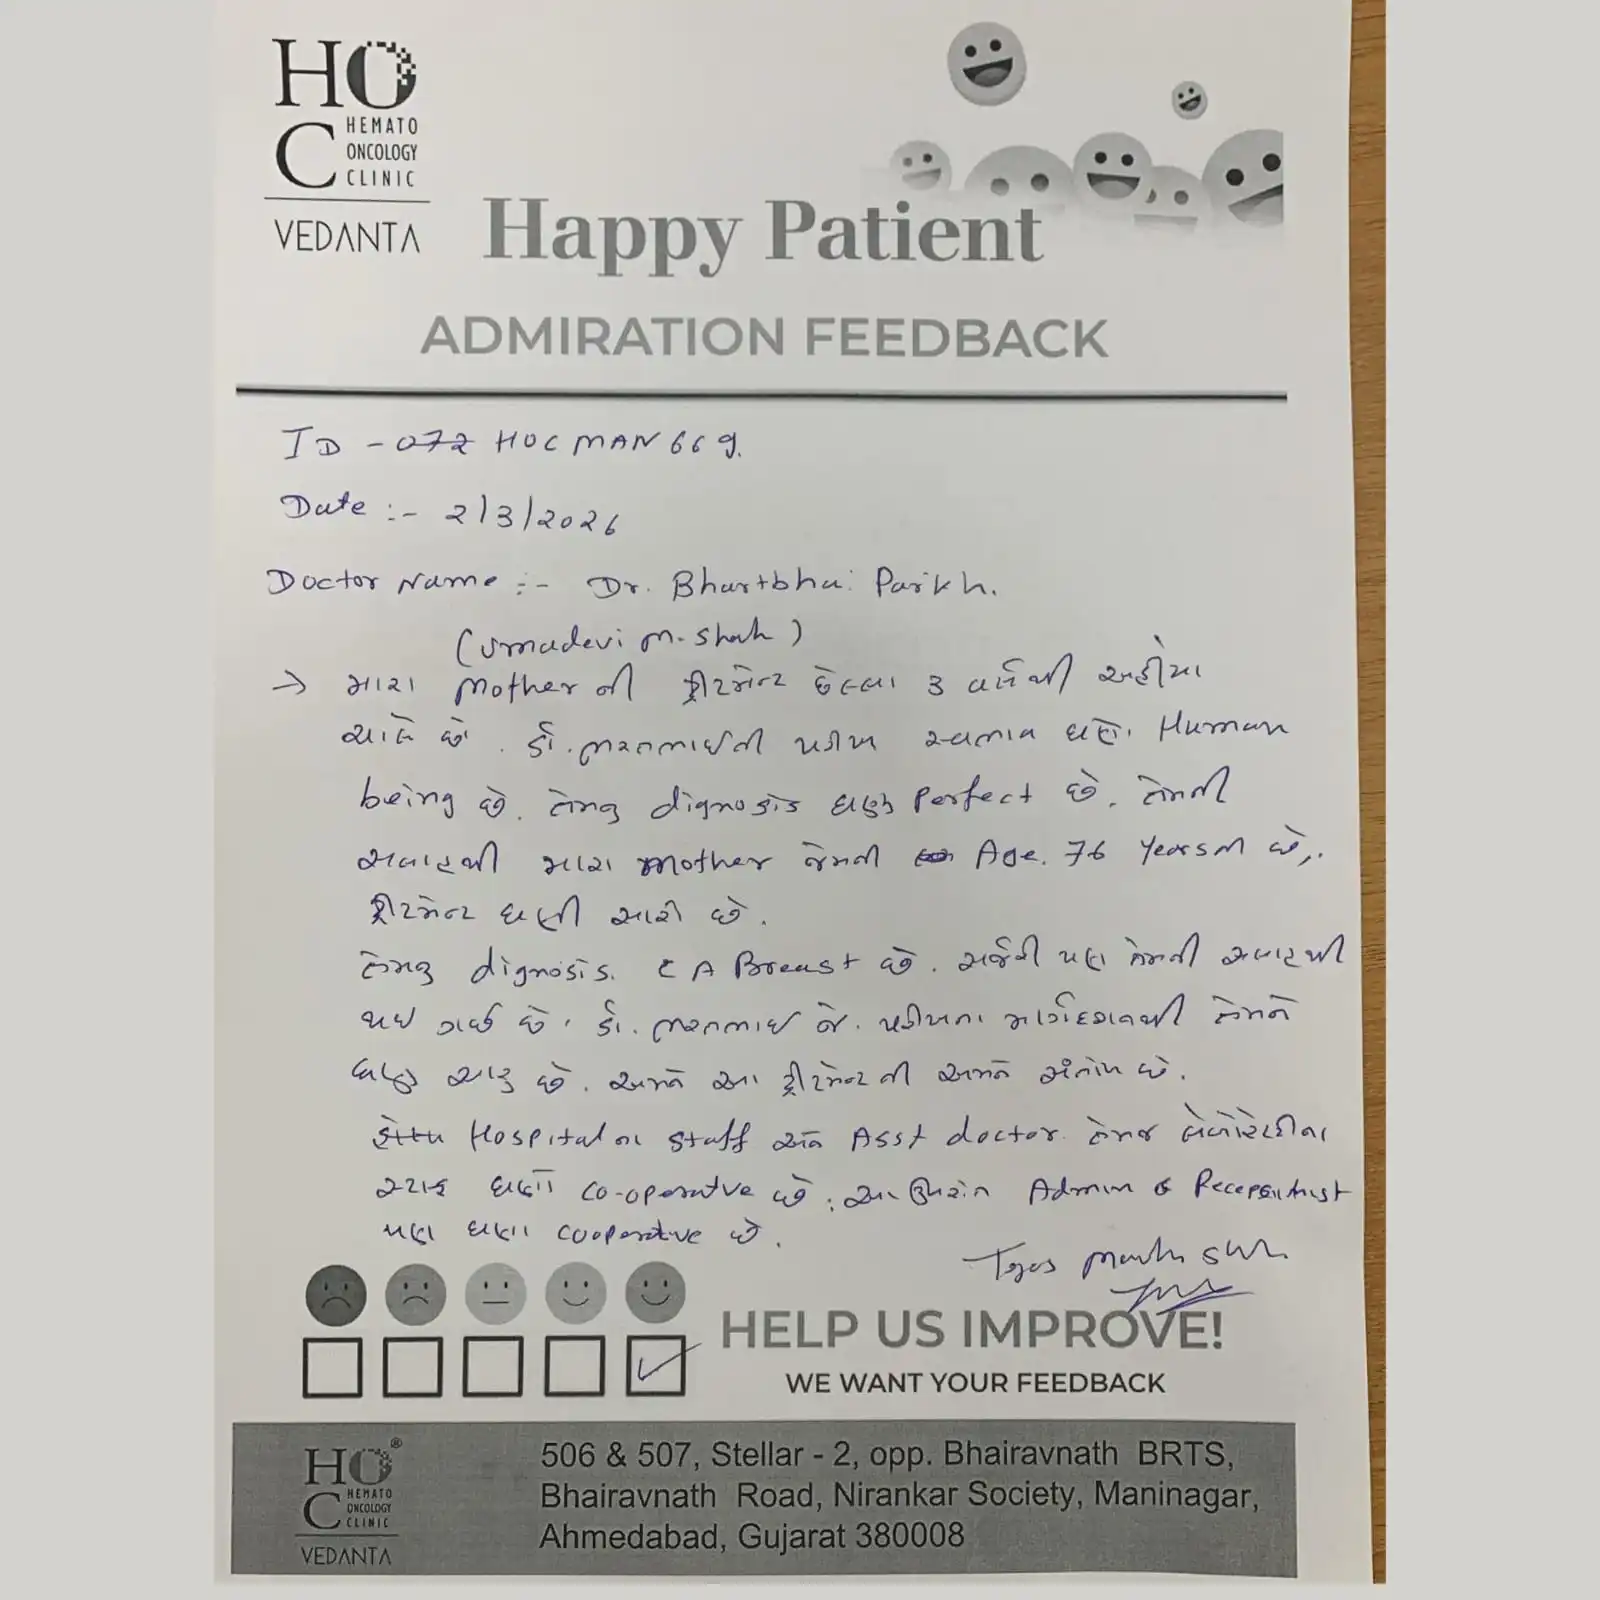 HOC
HEMATO
ONCOLOGY
CLINIC
VEDANTA
Happy Patient
ADMIRATION FEEDBACK
ID - 072 HOC MAN 669.
Date :- 2/3/2026
Doctor Name :- Dr. Bhartbhai Parikh.
(Umadevi M. Shah)
→ મારા Mother ની ટ્રીટમેન્ટ છેલ્લા 3 વર્ષથી અહીંયા
ચાલે છે. ડૉ. ભરતભાઈની પરીખ સ્વભાવ ઘણો Human
being છે. તેમનુ dignosis ઘણુ Perfect છે. તેમની
સલાહથી મારા mother જેમની Age. 76 Years ની છે,.
ટ્રીટમેન્ટ ઘણી સારી છે.
તેમનુ dignosis. CA Breast છે. સર્જરી પણ તેમની સલાહથી
થઇ ગઈ છે. ડૉ. ભરતભાઇ જે. પરીખના માર્ગદર્શનથી તેમને
ઘણુ સારુ છે. અમને આ ટ્રીટમેન્ટ ની અમને સંતોષ છે.
Hospital ના staff અને Asst doctor તેમજ લેબોરેટરીના
સ્ટાફ ઘણો co-operative છે. આ ઉપરાંત Admin & Receptionist
પણ ઘણા cooperative છે.
Tejas
HELP US IMPROVE!
WE WANT YOUR FEEDBACK
HOC®
HEMATO
ONCOLOGY
CLINIC
VEDANTA
506 & 507, Stellar - 2, opp. Bhairavnath BRTS,
Bhairavnath Road, Nirankar Society, Maninagar,
Ahmedabad, Gujarat 380008